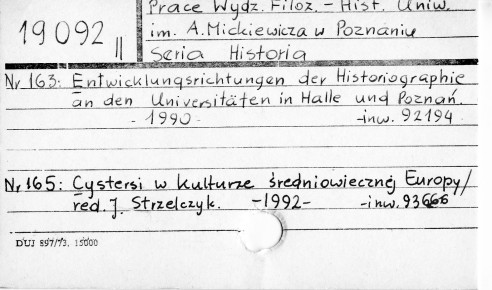 Prace Wydz. Filoz. - Hist. Uniw.
19092 II
im. A. Mickiewicza w Poznaniu
Seria Historia
Nr 163: Entwicklungsrichtungen der Historiographie
an den Universitäten in Halle und Poznań.
- 1990 - -inw. 92194
Nr 165: Cystersi w kulturze średniowiecznej Europy/
red. J. Strzelczyk. -1992- -inw. 93666
DUJ 897/73. 15000